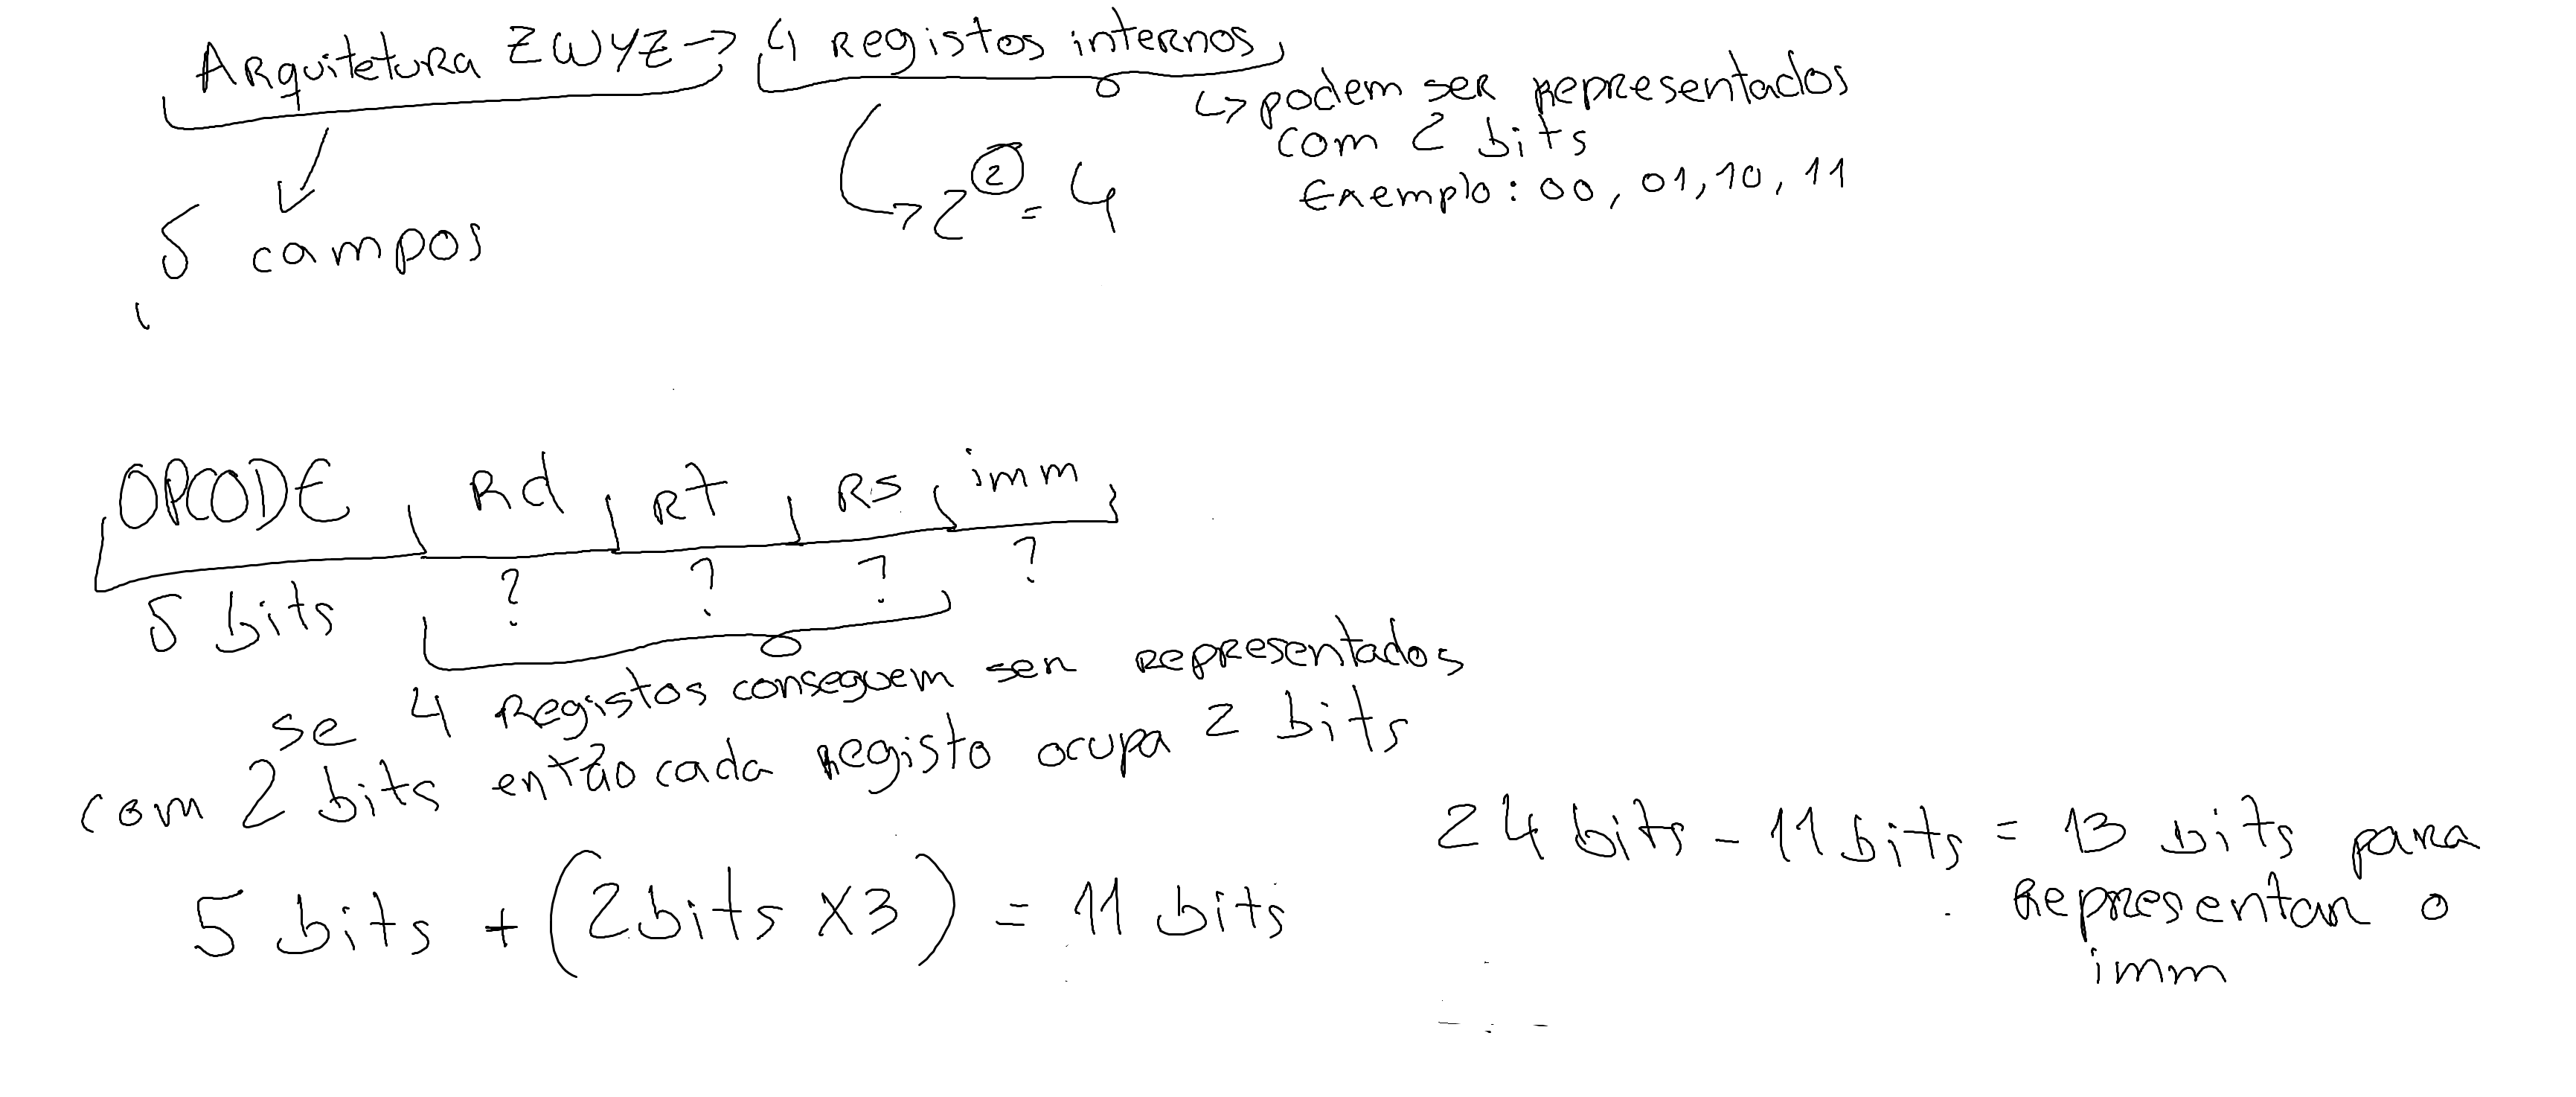 Arquitetura ZWYZ → 4 Registos internos
↳ podem ser representados
com 2 bits
Exemplo: 00, 01, 10, 11
2² = 4
5 campos
OPCODE Rd Rt Rs imm
5 bits ? ? ? ?
se 4 Registos conseguem ser representados
com 2 bits então cada registo ocupa 2 bits
5 bits + (2bits x3) = 11 bits
24 bits - 11 bits = 13 bits para
Representar o
imm